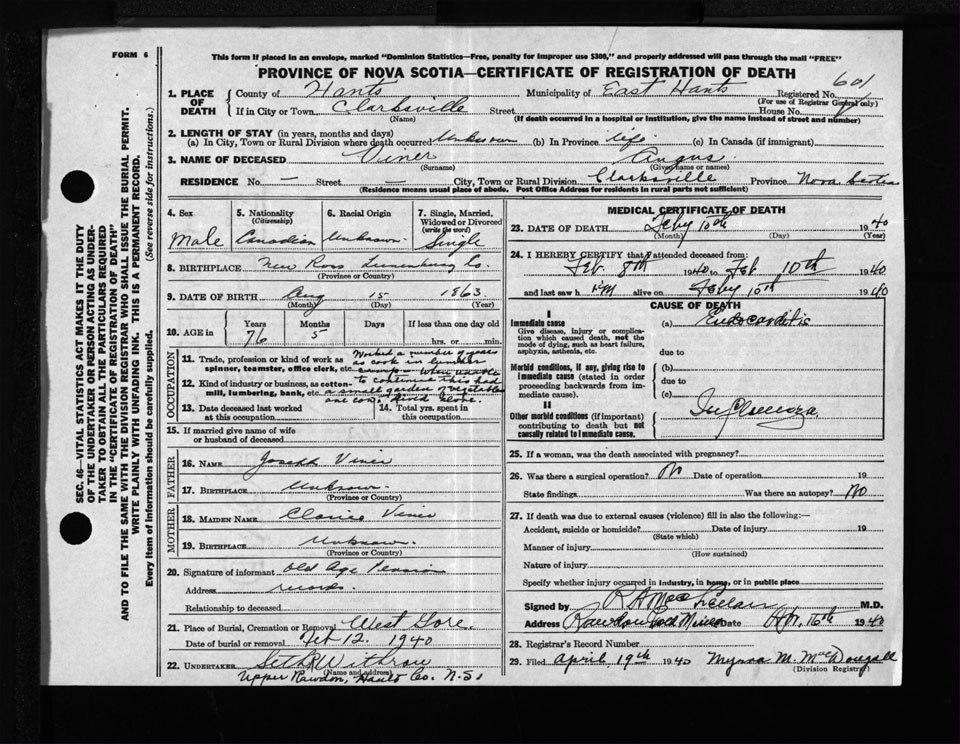 FORM 6
This form if placed in an envelope, marked "Dominion Statistics—Free, penalty for improper use $300," and properly addressed will pass through the mail "FREE"
PROVINCE OF NOVA SCOTIA—CERTIFICATE OF REGISTRATION OF DEATH
1. PLACE OF DEATH County of Hants Municipality of East Hants Registered No. 601
(For use of Registrar General only)
If in City or Town Clarksville Street House No.
(Name) (If death occurred in a hospital or institution, give the name instead of street and number)
2. LENGTH OF STAY (in years, months and days)
(a) In City, Town or Rural Division where death occurred Unknown (b) In Province life (c) In Canada (if immigrant)
3. NAME OF DECEASED Viner Angus
(Surname) (Given name or names)
RESIDENCE No. — Street City, Town or Rural Division Clarksville Province Nova Scotia
(Residence means usual place of abode. Post Office Address for residents in rural parts not sufficient)
4. Sex Male
5. Nationality (Citizenship) Canadian
6. Racial Origin Unknown
7. Single, Married, Widowed or Divorced (write the word) Single
8. BIRTHPLACE New Ross Lunenburg Co.
(Province or Country)
9. DATE OF BIRTH Aug 15 1863
(Month) (Day) (Year)
10. AGE in Years 76 Months 5 Days If less than one day old hrs. or min.
OCCUPATION
11. Trade, profession or kind of work as spinner, teamster, office clerk, etc. Worked a number of years as cook in lumber camp - When unable
12. Kind of industry or business, as cotton-mill, lumbering, bank, etc. to continue this had a small garden of vegetables one cow. lived alone.
13. Date deceased last worked at this occupation
14. Total yrs. spent in this occupation
15. If married give name of wife or husband of deceased
FATHER
16. NAME Joseph Viner
17. BIRTHPLACE Unknown
(Province or Country)
MOTHER
18. MAIDEN NAME Viner
19. BIRTHPLACE Unknown
(Province or Country)
20. Signature of informant Old Age Pension
Address
Relationship to deceased
21. Place of Burial, Cremation or Removal West Gore
Date of burial or removal Feb 12, 1940
22. UNDERTAKER Seth Withrow
(Name and address)
Upper Rawdon, Hants Co. N.S.
MEDICAL CERTIFICATE OF DEATH
23. DATE OF DEATH Feby 10th 1940
(Month) (Day) (Year)
24. I HEREBY CERTIFY that I attended deceased from:
Feb. 8th 1940 to Feb 10th 1940
and last saw him alive on Feby 10th 1940
CAUSE OF DEATH
I
Immediate cause
Give disease, injury or complication which caused death, not the mode of dying, such as heart failure, asphyxia, asthenia, etc.
(a) Endocarditis
due to
Morbid conditions, if any, giving rise to immediate cause (stated in order proceeding backwards from immediate cause).
(b)
due to
(c)
II
Other morbid conditions (if important) contributing to death but not causally related to immediate cause.
Influenza
25. If a woman, was the death associated with pregnancy?
26. Was there a surgical operation? No Date of operation 19
State findings Was there an autopsy? No
27. If death was due to external causes (violence) fill in also the following:—
Accident, suicide or homicide? Date of injury 19
(State which)
Manner of injury
(How sustained)
Nature of injury
Specify whether injury occurred in industry, in home, or in public place
Signed by M.D.
Address Rawdon Gold Mines Date Apr. 16th 1940
28. Registrar's Record Number
29. Filed April 19th 1940 Myrna M. MacDougall
(Division Registrar)
SEC. 46—VITAL STATISTICS ACT MAKES IT THE DUTY
OF THE UNDERTAKER OR PERSON ACTING AS UNDER-
TAKER TO OBTAIN ALL THE PARTICULARS REQUIRED
IN THE "CERTIFICATE OF REGISTRATION OF DEATH"
AND TO FILE THE SAME WITH THE DIVISION REGISTRAR WHO SHALL ISSUE THE BURIAL PERMIT.
WRITE PLAINLY WITH UNFADING INK. THIS IS A PERMANENT RECORD.
Every item of Information should be carefully supplied. (See reverse side for instructions.)